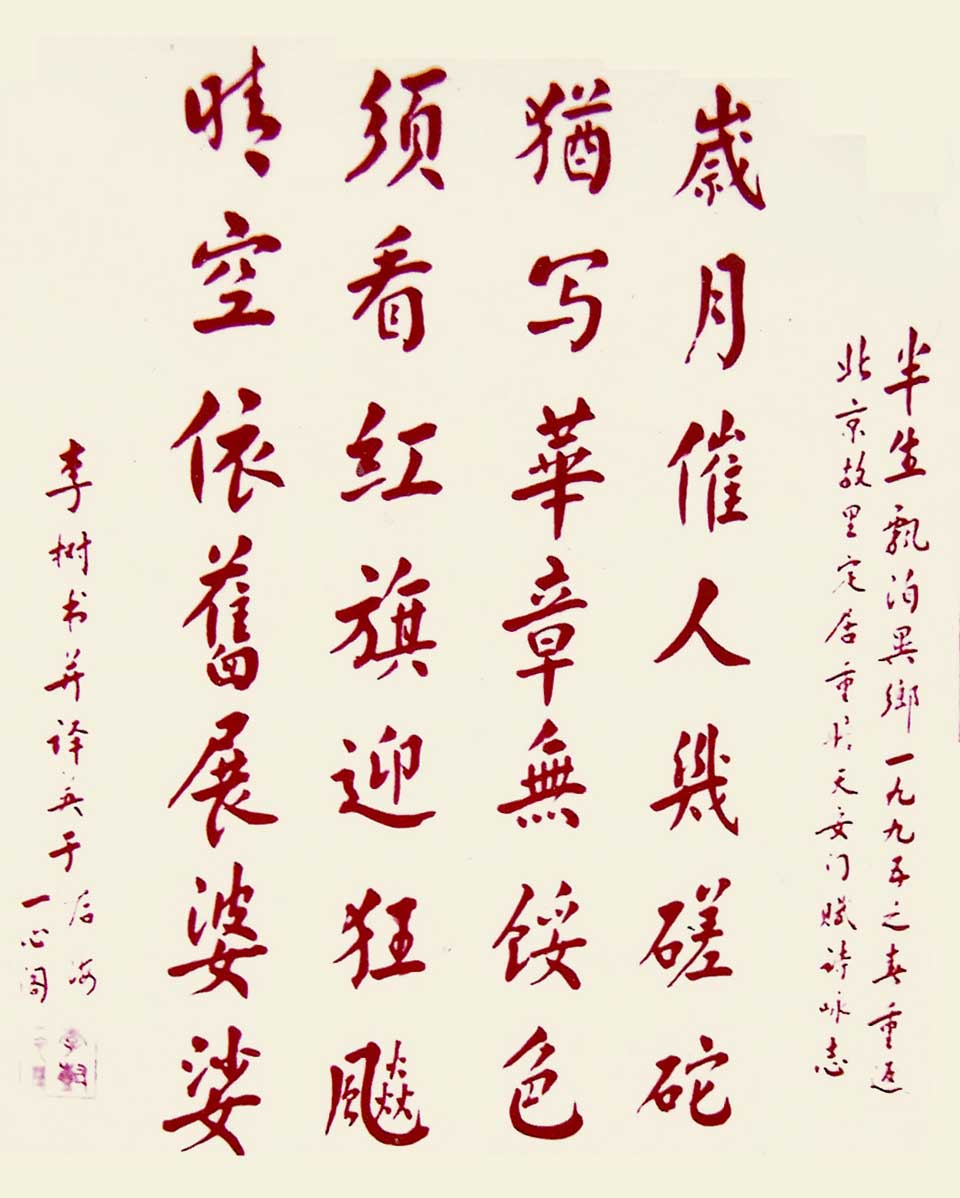 半生飘泊異鄉一九九五之春重返
北京故里定居重天安门赋诗咏志
歲月催人幾磋砣
猶写華章無餒色
須看红旗迎狂飈
晴空依舊展婆娑
李树书并译英于后海
一心阁